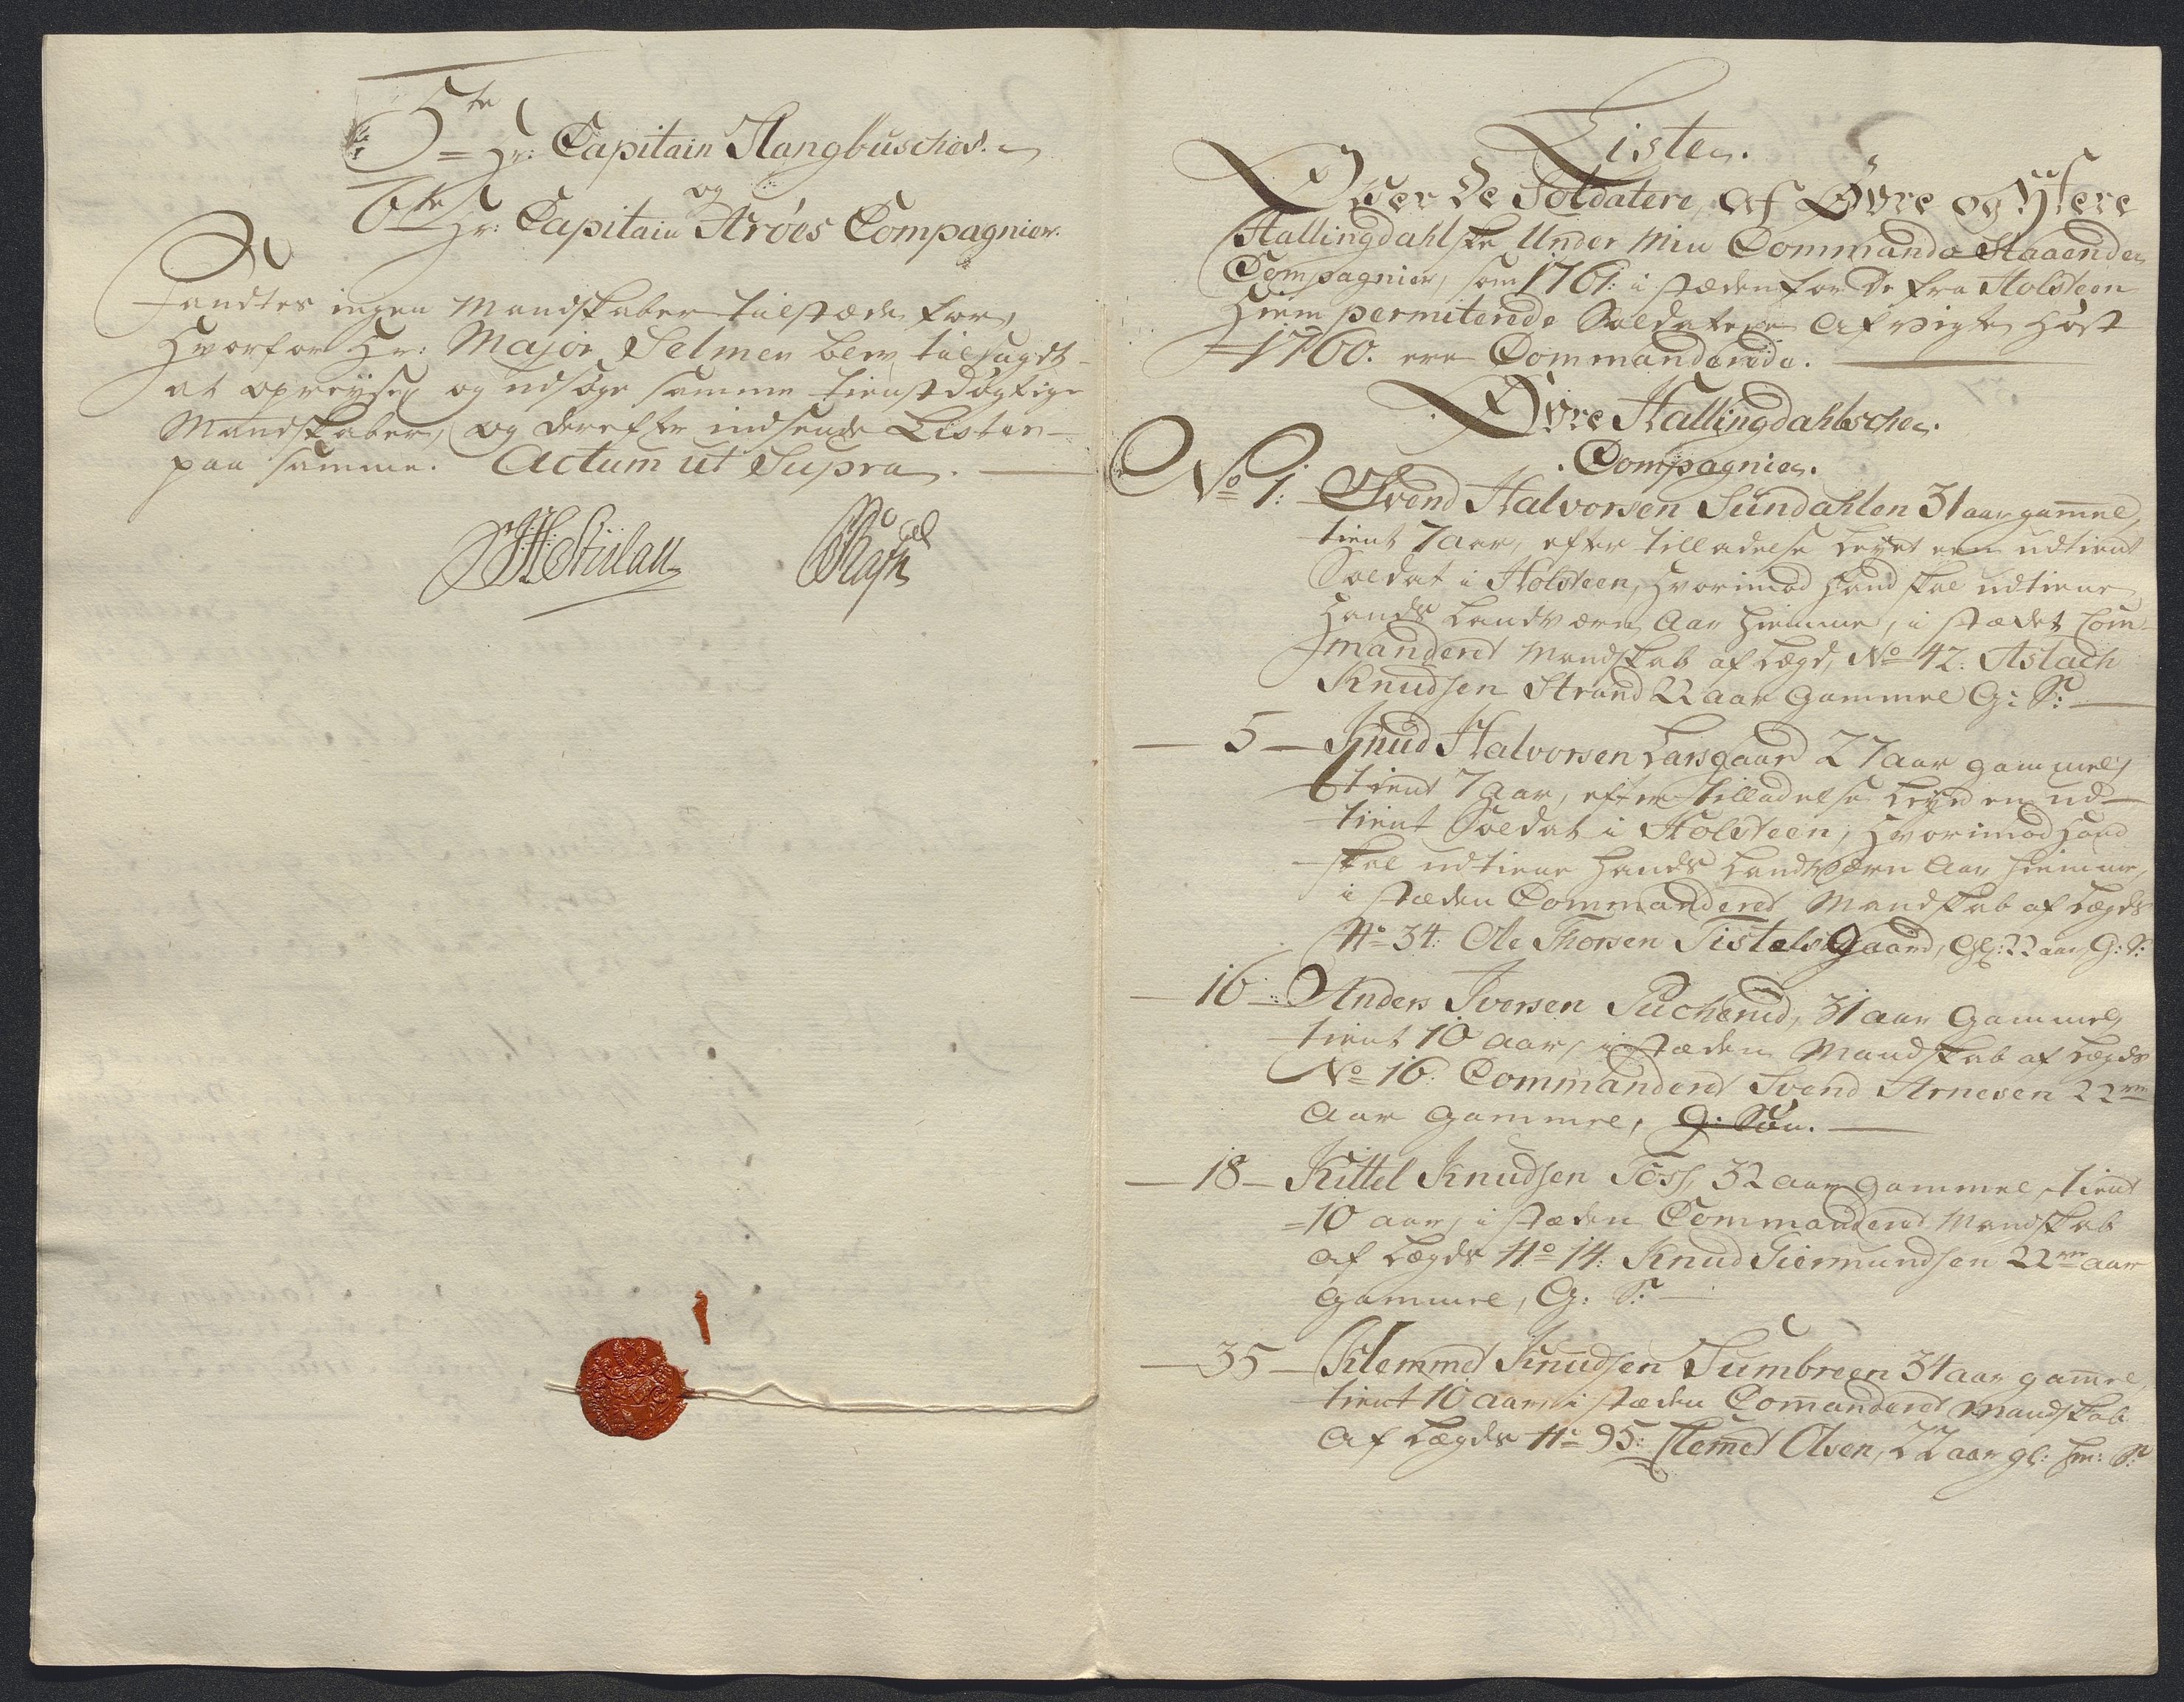 5te Hr: Capitain Hangbusches.
og
6te Hr: Capitain Arøes Compagnier.
Fandtes ingen Mandskaber tilstæde for,
Hvorfor Hr: Major Selmer blev tilsagdt
at opreyse og udsøge samme tienstdögtige
Mandskaber, og derefter indsende Listen
paa samme. Actum ut Supra.
Liste.
Over De Soldatere af Øvre og Ytere
Hallingdahlske Under Min Commando Staaende
Compagnier, som 1761: i stæden for De fra Holsteen
Hiem permiterede Soldatere Afvigte Høst
1760. ere Commanderede.
Øvre Hallingdahlsche.
Compagnie.
No 1: Svend Halvorsen Sundahlen 31 aar gamel,
tient 7 aar, efter tilladelse leyet een udtient
Soldat i Holsteen, Hvorimod Hand skal udtiene
Hands Landværn Aar Hiemme, i stædet Com-
manderet Mandskab af Lægd No 42: Aslach
Knudsen Strand 22 aar Gammel G: S:
5 Knud Halvorsen Larsgaard 27 aar gammel,
tient 7 aar, efter tilladelse leyed en ud-
tient Soldat i Holsteen, Hvorimod Hand
skal udtiene Hands Landværn Aar Hiemme,
i stæden Commanderet Mandskab af Lægds
No 34: Ole Thorsen Tistelsgaard, Gl: 22 aar G: S:
16 Anders Iversen 31 aar Gammel,
tient 10 aar, i stæden Mandskab af Lægds
No 16: Commanderet Svend Arnesen 22
Aar Gammel, G: Søn.
18 Kittel Knudsen 32 aar Gammel, tient
10 aar, i stæden Commanderet Mandskab
af Lægds No 14: Knud Giermundsen 22 aar
Gammel, G: S:
35 Klemmet Knudsen Sumbreen 31 aar gamel,
tient 10 aar, i stæden Comanderet Mandskab
Af Lægds No 95: Clemet Olsen, 22 aar gl: S: